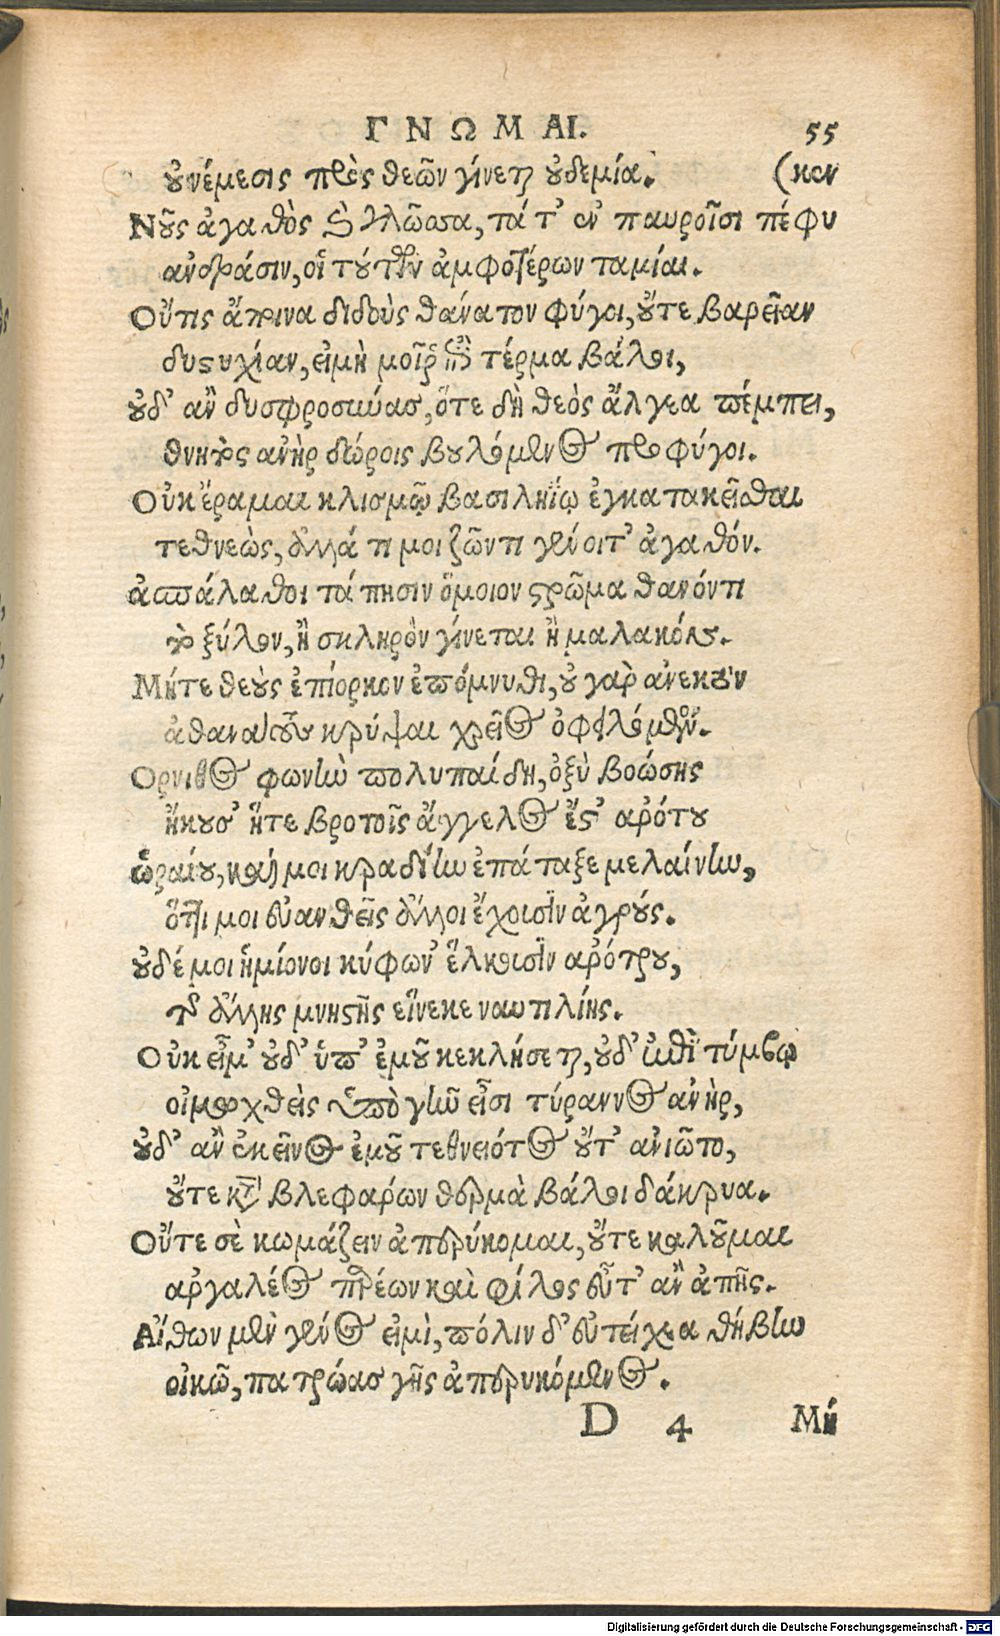 ΓΝΩΜΑΙ. 55
οὐ νέμεσις πρὸς θεῶν γίνεται οὐδεμία. (κεν
Νοῦς ἀγαθὸς καὶ γλῶσσα, τά τ' ἐν παυροῖσι πέφυ
ἀνδράσιν, οἳ τούτων ἀμφοτέρων ταμίαι.
Οὔτις ἄποινα διδοὺς θάνατον φύγοι, οὔτε βαρεῖαν
δυστυχίαν, εἰ μὴ μοῖρ' ἐπὶ τέρμα βάλοι,
οὐδ' ἂν δυσφροσύνας, ὅτε δὴ θεὸς ἄλγεα πέμπει,
θνητὸς ἀνὴρ δώροις βουλόμενος προφύγοι.
Οὐκ ἔραμαι κλισμῷ βασιληΐῳ ἐγκατακεῖσθαι
τεθνεὼς, ἀλλά τι μοι ζῶντι γένοιτ' ἀγαθόν.
ἀσπάλαθοι τάπησιν ὅμοιον στρῶμα θανόντι
τὸ ξύλον, ἢ σκληρὸν γίνεται ἢ μαλακόν.
Μήτε θεοὺς ἐπίορκον ἐπόμνυθι, οὐ γὰρ ἀνεκτὸν
ἀθανάτους κρύψαι χρεῖος ὀφειλόμενον.
Ορνιθος φωνὴν πολυπαίδη, ὀξὺ βοώσης
ἤκουσ' ἥτε βροτοῖς ἄγγελος ἔστ' ἀρότου
ὡραίου, καί μοι κραδίην ἐπάταξε μελαίνην,
ὅττι μοι εὐανθεῖς ἄλλοι ἔχουσιν ἀγρούς.
οὐδέ μοι ἡμίονοι κύφων' ἕλκουσιν ἀρότρου,
τῆς ἄλλης μνηστῆς εἵνεκε ναυτιλίης.
Οὐκ εἶμ' οὐδ' ὑπ' ἐμοῦ κεκλήσεται, οὐδ' ἐπὶ τύμβῳ
οἰμωχθεὶς ὑπὸ γῆν εἶσι τύραννος ἀνὴρ,
οὐδ' ἂν ἐκεῖνος ἐμοῦ τεθνειότος οὔτ' ἀνιῷτο,
οὔτε κατὰ βλεφάρων θερμὰ βάλοι δάκρυα.
Οὔτε σὲ κωμάζειν ἀπερύκομαι, οὔτε καλοῦμαι
ἀργαλέος παρέων καὶ φίλος εὖτ' ἂν ἀπῇς.
Αἴθων μὲν γένος εἰμὶ, πόλιν δ' εὐτείχεα θήβην
οἰκῶ, πατρῴας γῆς ἀπερυκόμενος.
D 4 Μή
Digitalisierung gefördert durch die Deutsche Forschungsgemeinschaft - DFG